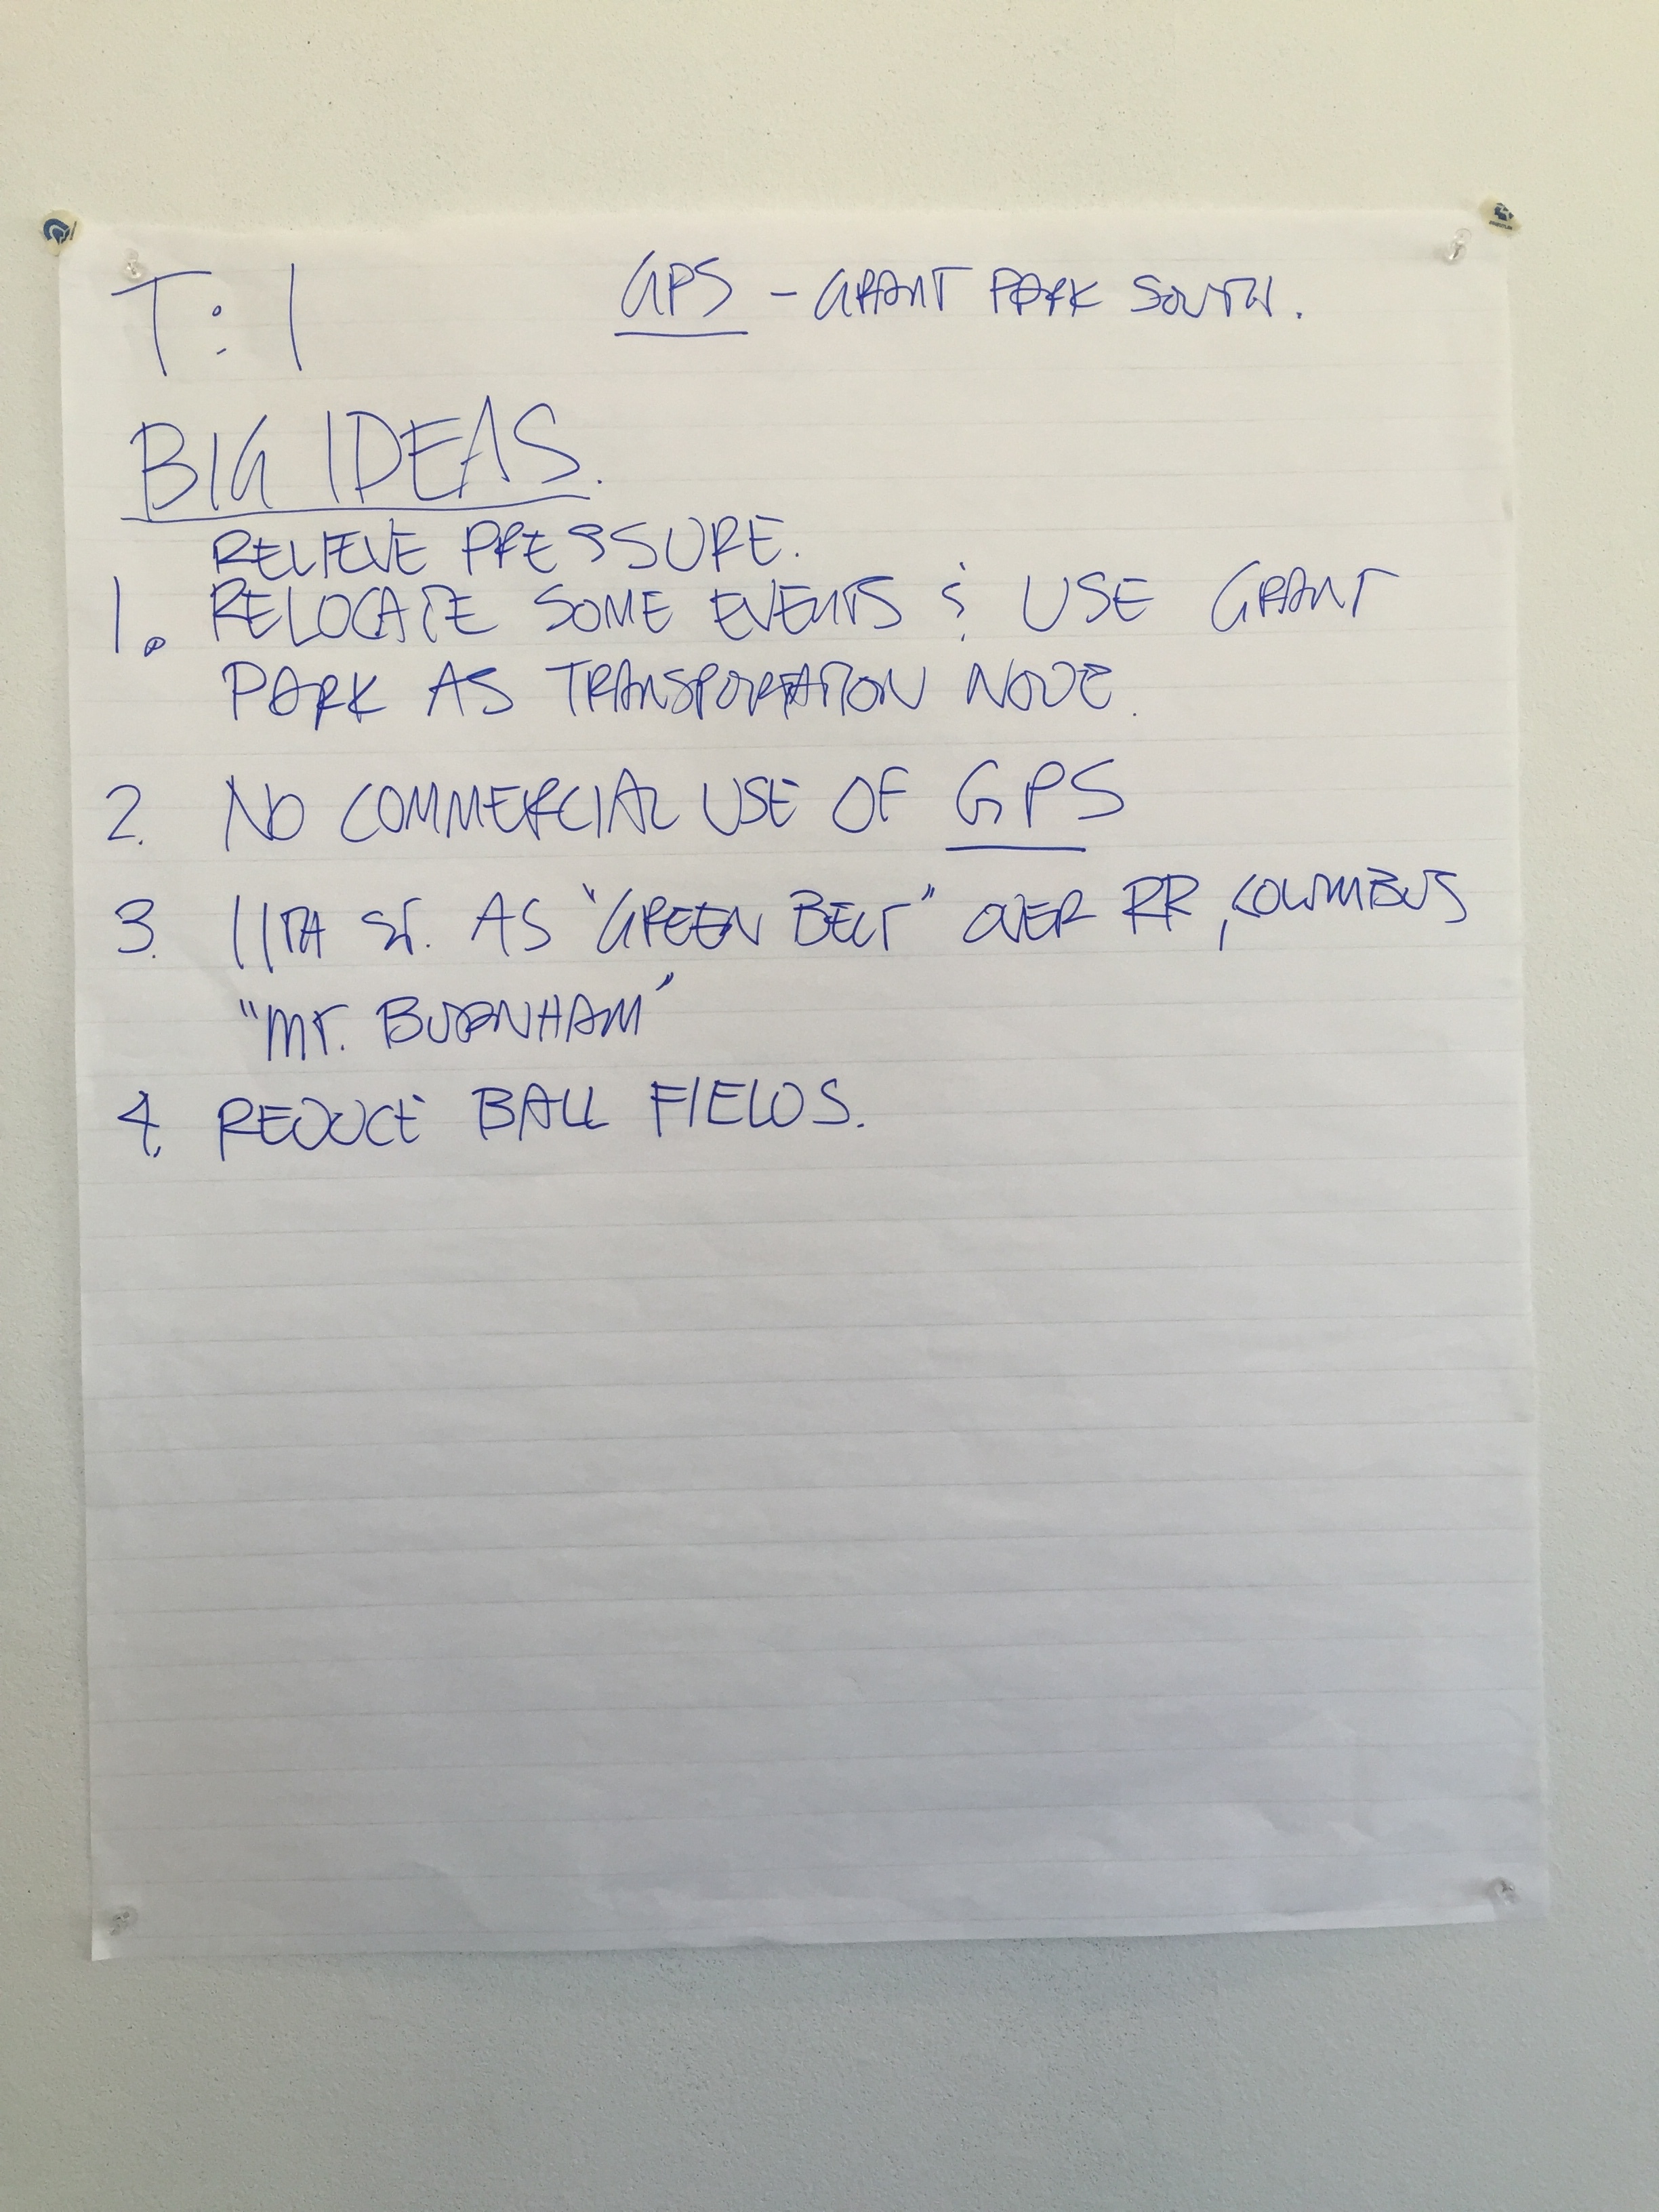 T:1
GPS - GRANT PARK SOUTH.
BIG IDEAS.
RELIEVE PRESSURE.
1. RELOCATE SOME EVENTS & USE GRANT
PARK AS TRANSPORTATION NODE.
2. NO COMMERCIAL USE OF GPS
3. 11TH ST. AS "GREEN BELT" OVER RR, COLUMBUS
"MR. BURNHAM"
4. REDUCE BALL FIELDS.